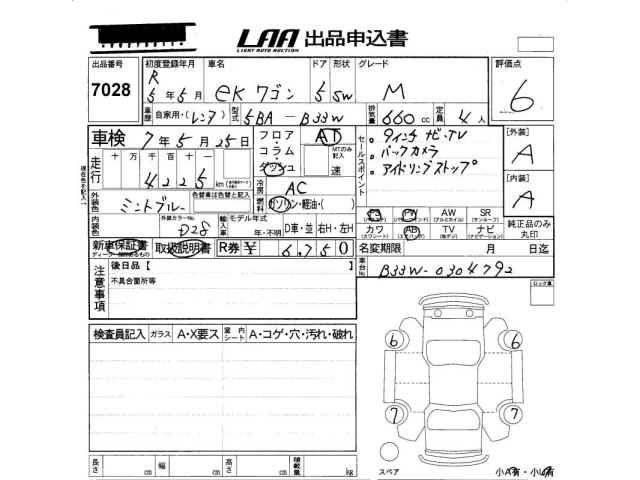 LAA 出品申込書
LIGHT AUTO AUCTION
出品番号 初度登録年月 車名 ドア 形状 グレード 評価点
7028 R 5年5月 eKワゴン 5 SW M 6
車歴 自家用・(レンフ) 型式 5BA - B33W 排気量 660 cc 定員 4人
車検 7年5月25日 フロア・コラム・ダッシュ AT MTのみ記入 速
セールスポイント
・9インチナビ・TV
・バックカメラ
・アイドリングストップ
[外装] A
[内装] A
現在色を記入
走行 十 万 千 百 十 一
4225 km
冷房 AC
燃料 ガソリン・軽油・( )
外装色 ミントブルー 色替車は色替と記入
内装色 外装カラーNo. D28
輸入車 モデル年式 年・不明 D車・並 右H・左H
PS PW AW SR
(パワステ) (パワーウィンド) (アルミホイル) (サンルーフ)
カワ AB TV ナビ
(カワシート) (エアバッグ) (地デジ) (ナビゲーション)
純正品のみ丸印
新車保証書 取扱説明書 R券 ¥ 6,750 名変期限 月 日迄
車台No. B33W-0304792
注意事項 後日品【
不具合箇所等
ロック車
検査員記入 ガラス A・X要ス 室内シート A・コゲ・穴・汚れ・破れ
6 6
7 7
長さ cm 幅 cm 高さ cm 積載量 kg
スペア
小A有・小U有